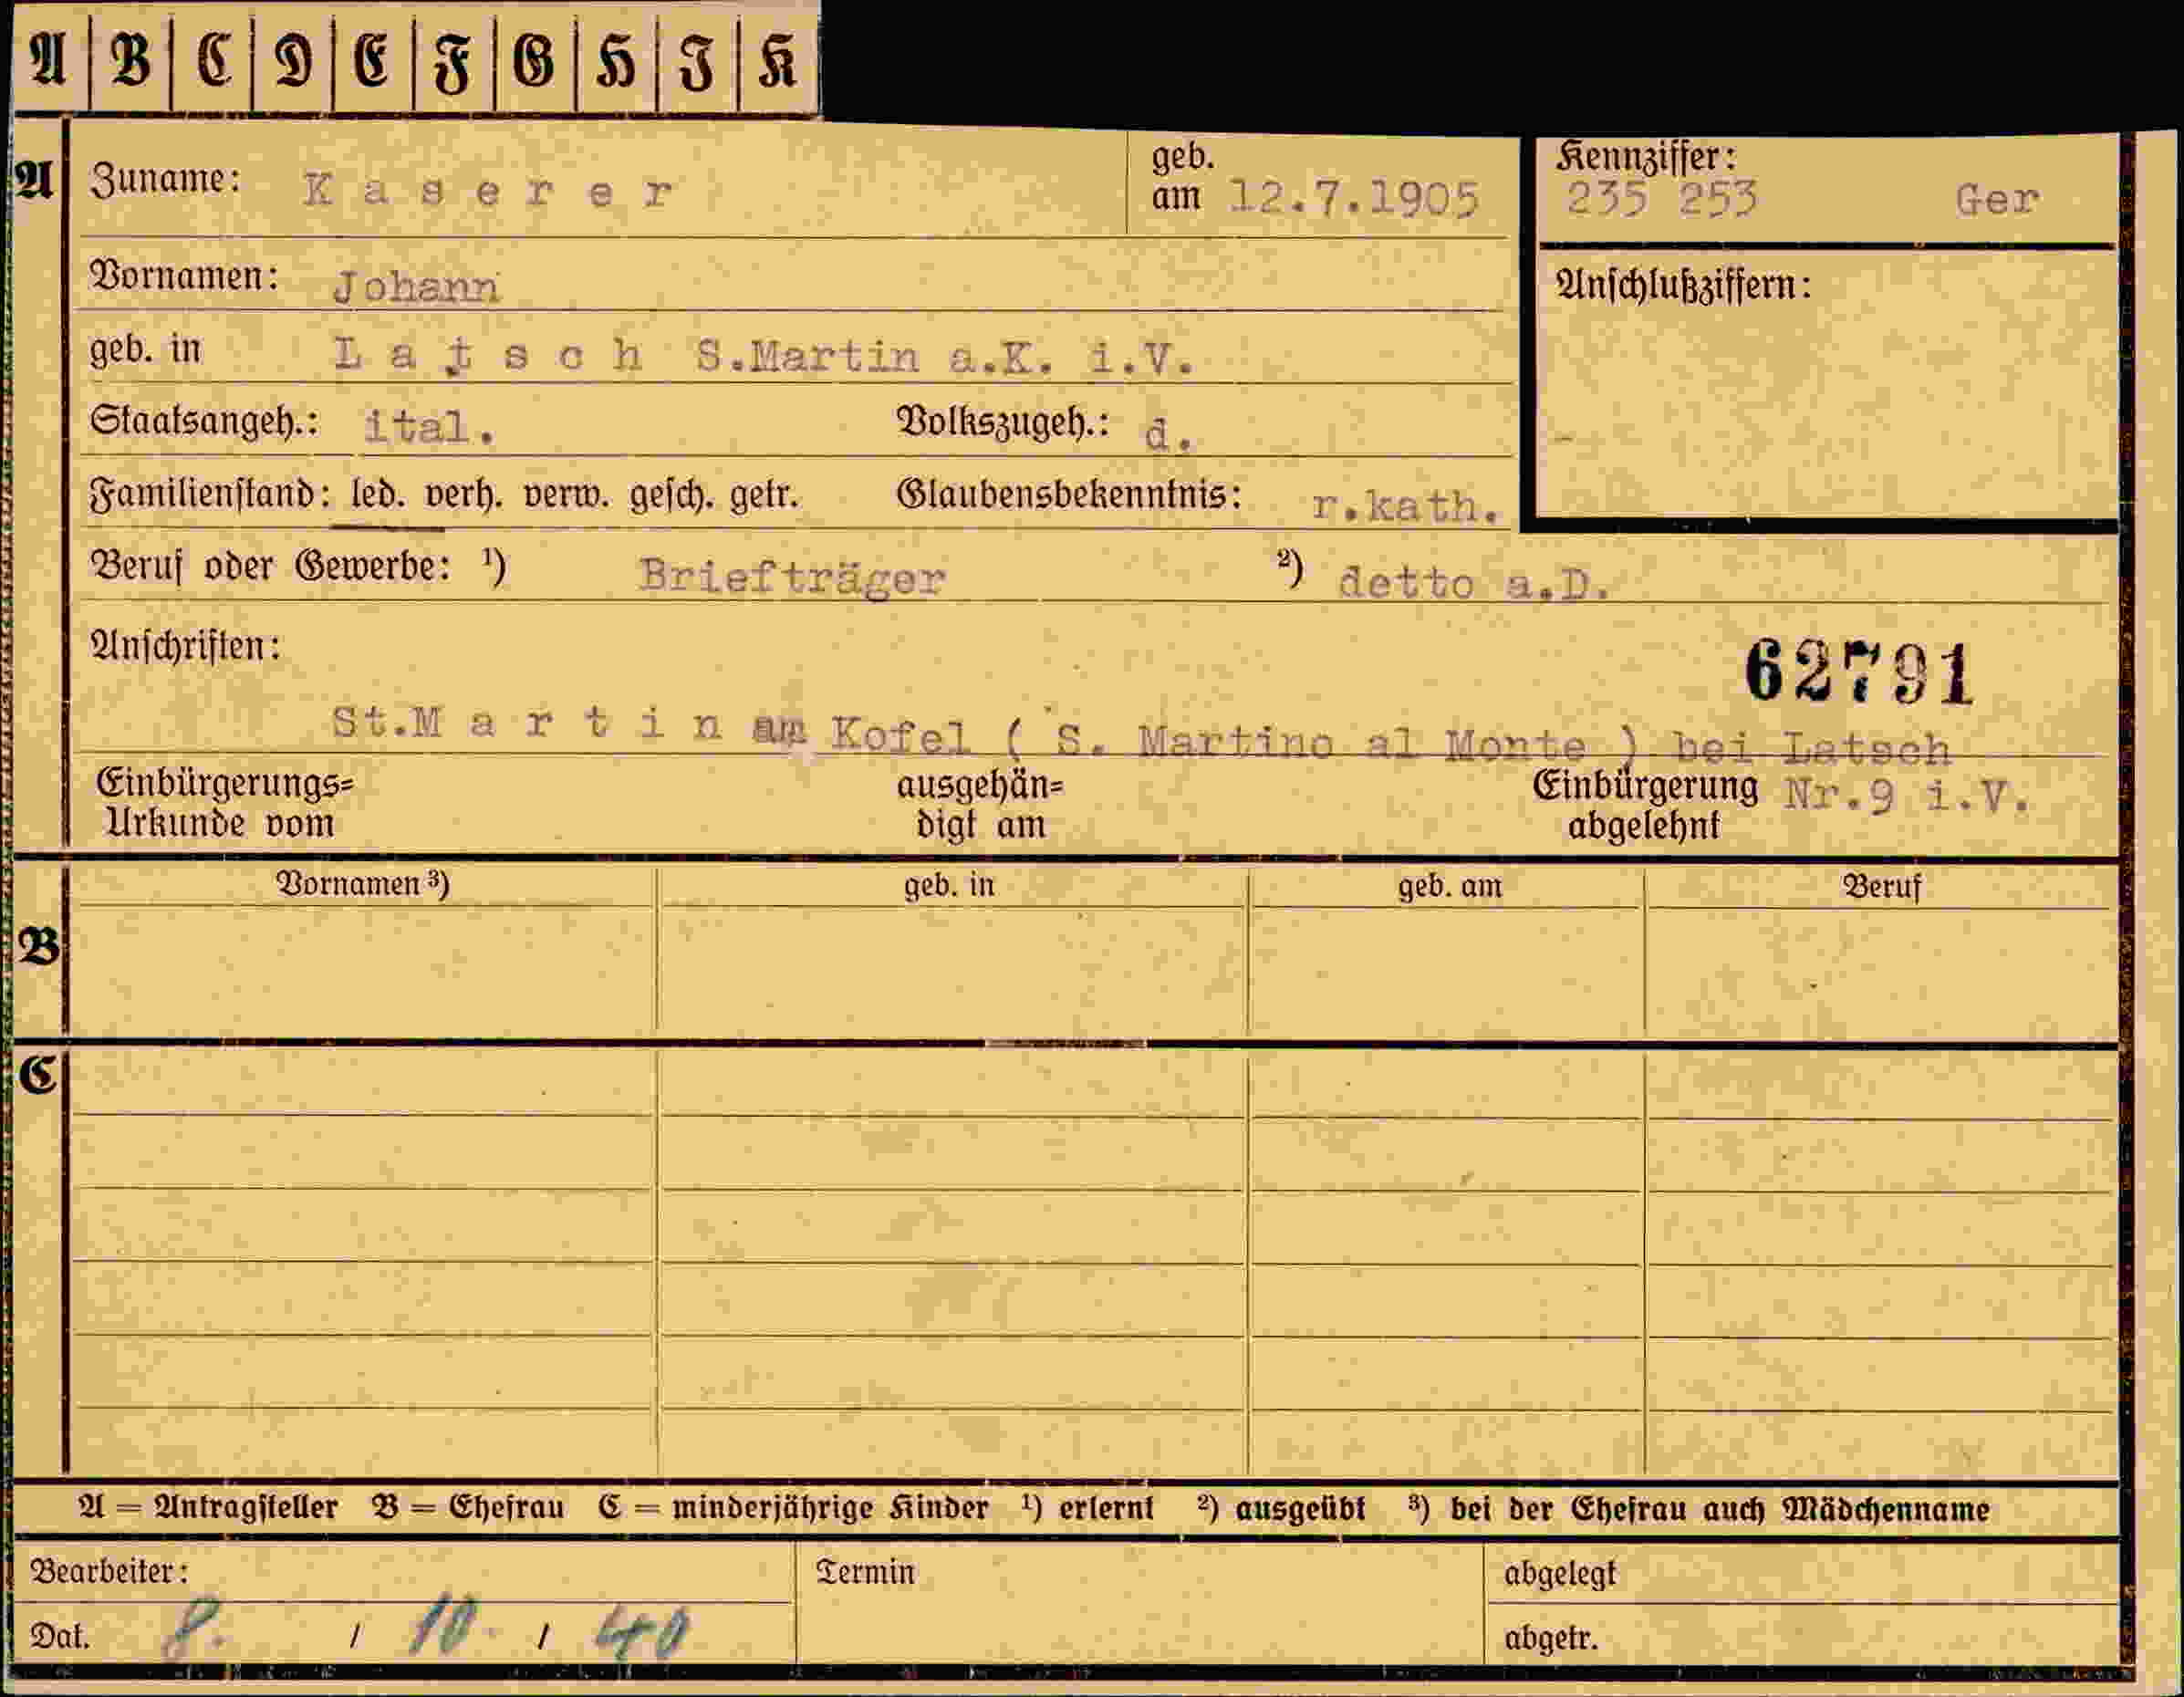 A B C D E F G H I K
A Zuname: Kaserer geb. am 12.7.1905 Kennziffer: 235 253 Ger
Vornamen: Johann Anschlußziffern:
geb. in Latsch S.Martin a.K. i.V.
Staatsangeh.: ital. Volkszugeh.: d.
Familienstand: led. verh. verw. gesch. getr. Glaubensbekenntnis: r.kath.
Beruf oder Gewerbe: ¹) Briefträger ²) detto a.D.
Anschriften:
62791
St.Martin am Kofel ( S. Martino al Monte ) bei Latsch
Einbürgerungs= ausgehän= Einbürgerung Nr.9 i.V.
Urkunde vom digt am abgelehnt
Vornamen ³) geb. in geb. am Beruf
B
C
A = Antragsteller B = Ehefrau C = minderjährige Kinder ¹) erlernt ²) ausgeübt ³) bei der Ehefrau auch Mädchenname
Bearbeiter: Termin abgelegt
Dat. 8. / 10. / 40 abgetr.